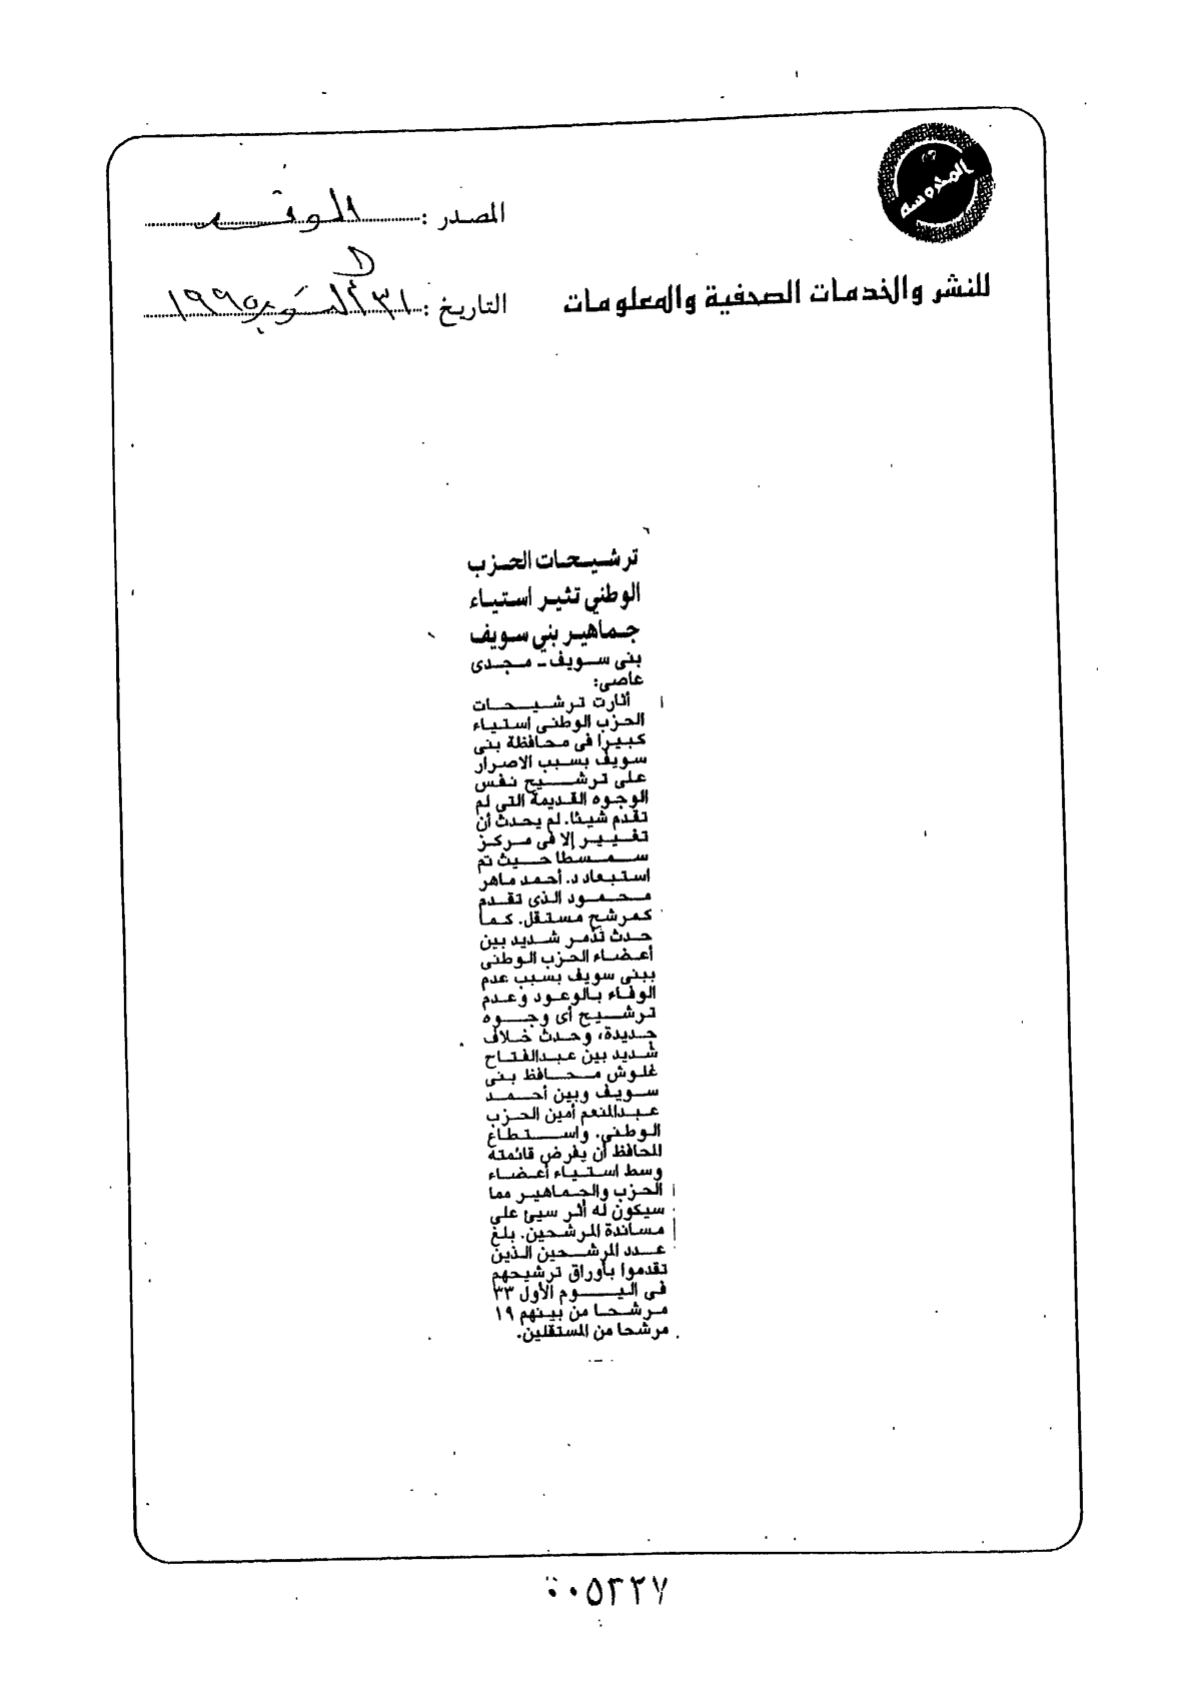 المحروسة
المصدر : الوفد
للنشر والخدمات الصحفية والمعلومات
التاريخ : ٣١ أكتوبر ١٩٩٥
ترشيحات الحزب
الوطني تثير استياء
جماهير بني سويف
بنى سويف ـ مجدى
عاصى:
أثارت ترشيحات
الحزب الوطنى استياء
كبيرا فى محافظة بنى
سويف بسبب الاصرار
على ترشيح نفس
الوجوه القديمة التى لم
تقدم شيئا. لم يحدث أن
تغيير إلا فى مركز
سمسطا حيث تم
استبعاد د. أحمد ماهر
محمود الذى تقدم
كمرشح مستقل. كما
حدث تذمر شديد بين
أعضاء الحزب الوطنى
ببنى سويف بسبب عدم
الوفاء بالوعود وعدم
ترشيح أى وجوه
جديدة، وحدث خلاف
شديد بين عبدالفتاح
غلوش محافظ بنى
سويف وبين أحمد
عبدالمنعم أمين الحزب
الوطنى. واستطاع
المحافظ أن يفرض قائمته
وسط استياء أعضاء
الحزب والجماهير مما
سيكون له أثر سيئ على
مساندة المرشحين. بلغ
عدد المرشحين الذين
تقدموا بأوراق ترشيحهم
فى اليوم الأول ٣٣
مرشحا من بينهم ١٩
مرشحا من المستقلين.